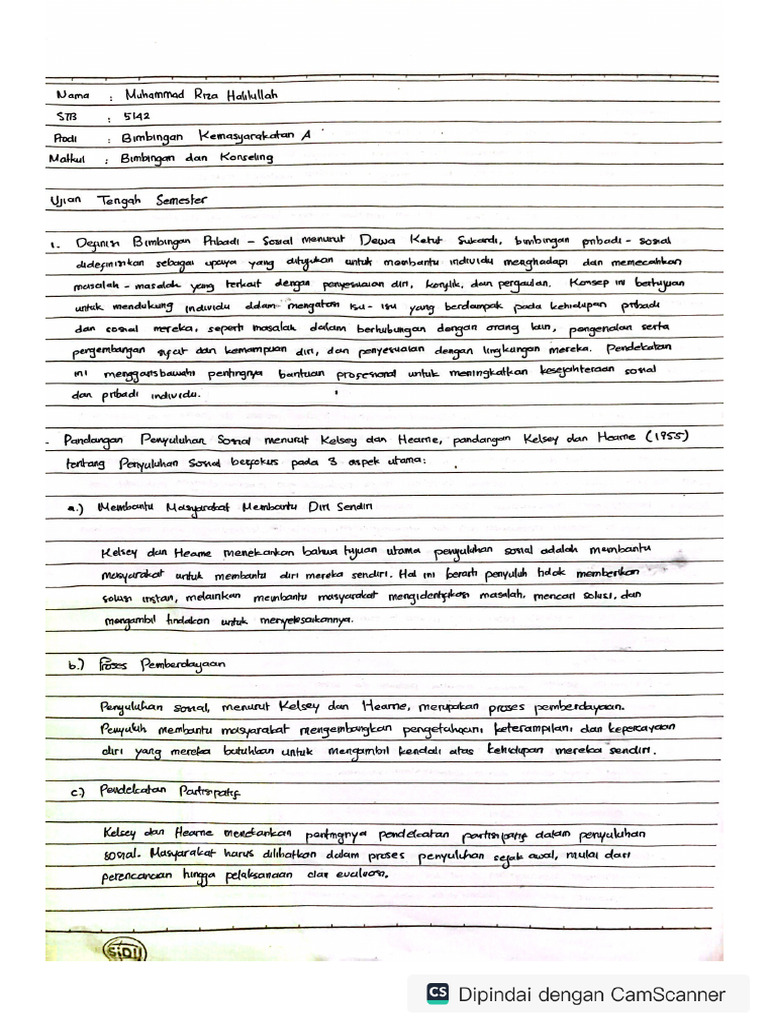 Nama : Muhammad Riza Halilullah
STB : 5142
Prodi : Bimbingan Kemasyarakatan A
Matkul : Bimbingan dan Konseling
Ujian Tengah Semester
1. Definisi Bimbingan Pribadi - Sosial menurut Dewa Ketut Sukardi, bimbingan pribadi - sosial
didefinisikan sebagai upaya yang ditujukan untuk membantu individu menghadapi dan memecahkan
masalah - masalah yang terkait dengan penyesuaian diri, konflik, dan pergaulan. Konsep ini bertujuan
untuk mendukung individu dalam mengatasi isu - isu yang berdampak pada kehidupan pribadi
dan sosial mereka, seperti masalah dalam berhubungan dengan orang lain, pengenalan serta
pergembangan sifat dan kemampuan diri, dan penyesuaian dengan lingkungan mereka. Pendekatan
ini menggarisbawahi pentingnya bantuan profesional untuk meningkatkan kesejahteraan sosial
dan pribadi individu.
- Pandangan Penyuluhan Sosial menurut Kelsey dan Hearne, pandangan Kelsey dan Hearne (1955)
tentang Penyuluhan Sosial berfokus pada 3 aspek utama:
a.) Membantu Masyarakat Membantu Diri Sendiri
Kelsey dan Hearne menekankan bahwa tujuan utama penyuluhan sosial adalah membantu
masyarakat untuk membantu diri mereka sendiri. Hal ini berarti penyuluh tidak memberikan
solusi instan, melainkan membantu masyarakat mengidentifikasi masalah, mencari solusi, dan
mengambil tindakan untuk menyelesaikannya.
b.) Proses Pemberdayaan
Penyuluhan sosial, menurut Kelsey dan Hearne, merupakan proses pemberdayaan.
Penyuluh membantu masyarakat mengembangkan pengetahuan, keterampilan, dan kepercayaan
diri yang mereka butuhkan untuk mengambil kendali atas kehidupan mereka sendiri.
c.) Pendekatan Partisipatif
Kelsey dan Hearne menekankan pentingnya pendekatan partisipatif dalam penyuluhan
sosial. Masyarakat harus dilibatkan dalam proses penyuluhan sejak awal, mulai dari
perencanaan hingga pelaksanaan dan evaluasi.
SIDU
CS Dipindai dengan CamScanner